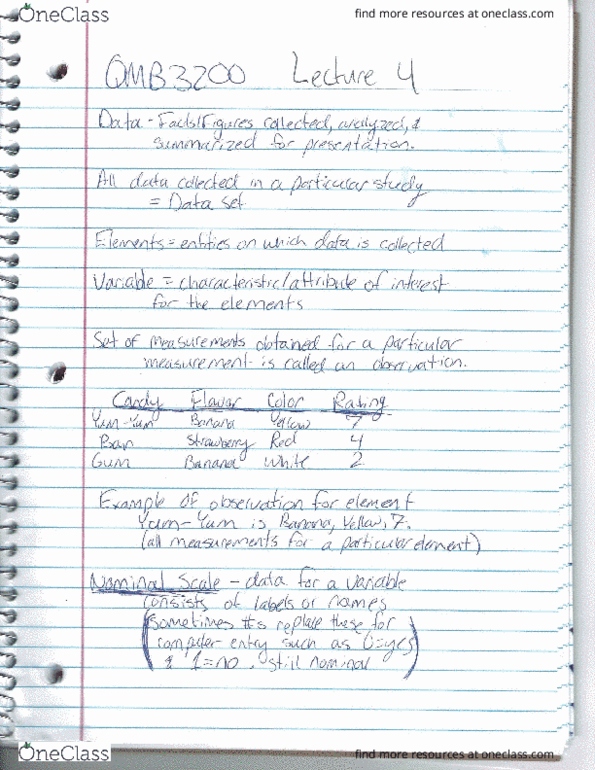 OneClass
find more resources at oneclass.com
QMB3200 Lecture 4
Data - Facts/Figures collected, analyzed, &
summarized for presentation.
All data collected in a particular study
= Data set
Elements = entities on which data is collected
Variable = characteristic/attribute of interest
for the elements
Set of measurements obtained for a particular
measurement is called an observation.
Candy Flavor Color Rating
Yum-Yum Banana Yellow 7
Ban Strawberry Red 4
Gum Banana White 2
Example of observation for element
Yum-Yum is, Banana, Yellow, 7.
(all measurements for a particular element)
Nominal Scale - data for a variable
consists of labels or names
(sometimes #s replace these for
computer entry such as 0=yes
& 1=no, still nominal)
OneClass
find more resources at oneclass.com